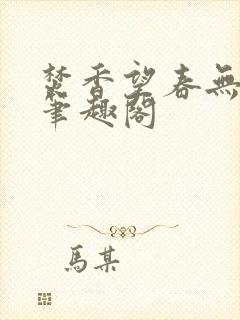 焚香望春無
筆趣閣
馬某